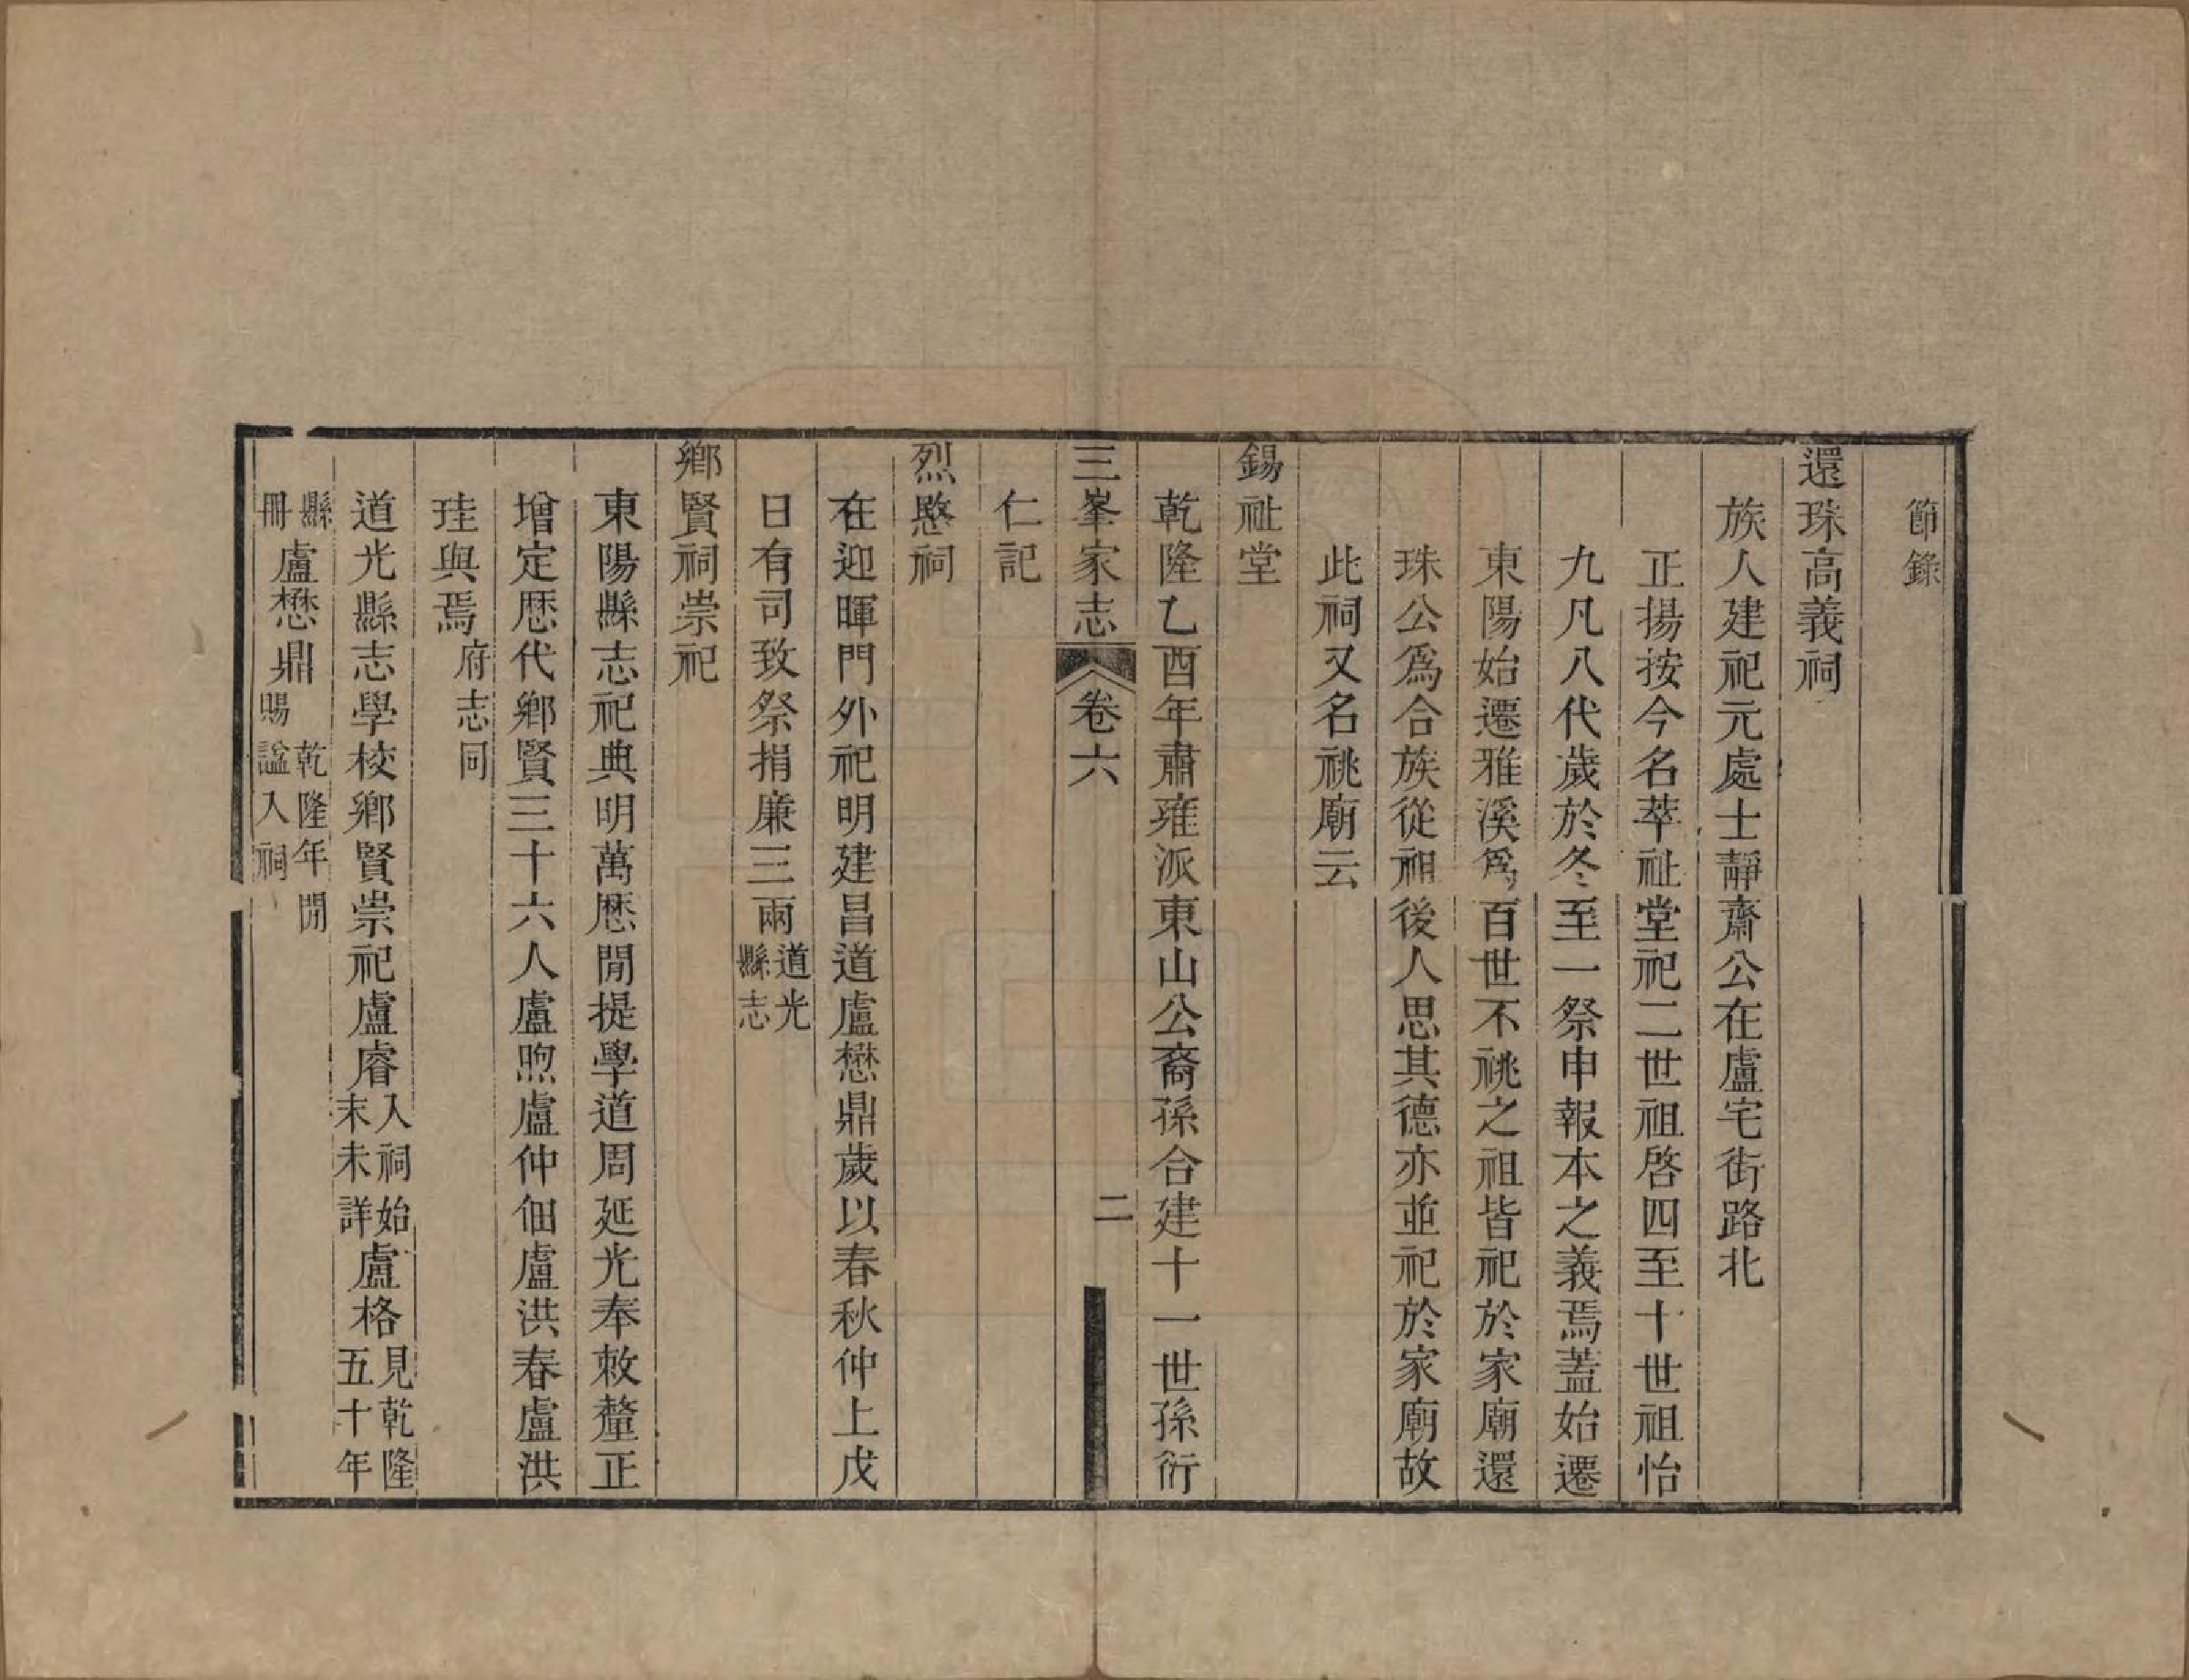 節錄
還珠高義祠
族人建祀元處士靜齋公在盧宅街路北
正揚按今名萃祉堂祀二世祖啓四至十世祖怡
九凡八代歲於冬至一祭申報本之義焉蓋始遷
東陽始遷雅溪爲百世不祧之祖皆祀於家廟還
珠公爲合族從祖後人思其德亦並祀於家廟故
此祠又名祧廟云
錫祉堂
乾隆乙酉年肅雍派東山公裔孫合建十一世孫衍
三峯家志 卷六 二
仁記
烈愍祠
在迎暉門外祀明建昌道盧懋鼎歲以春秋仲上戊
日有司致祭捐廉三兩道光縣志
鄉賢祠崇祀
東陽縣志祀典明萬歷閒提學道周延光奉敕釐正
增定歷代鄉賢三十六人盧煦盧仲佃盧洪春盧洪
珪與焉府志同
道光縣志學校鄉賢崇祀盧睿入祠始末未詳盧格見乾隆五十年
縣冊盧懋鼎乾隆年閒賜諡入祠